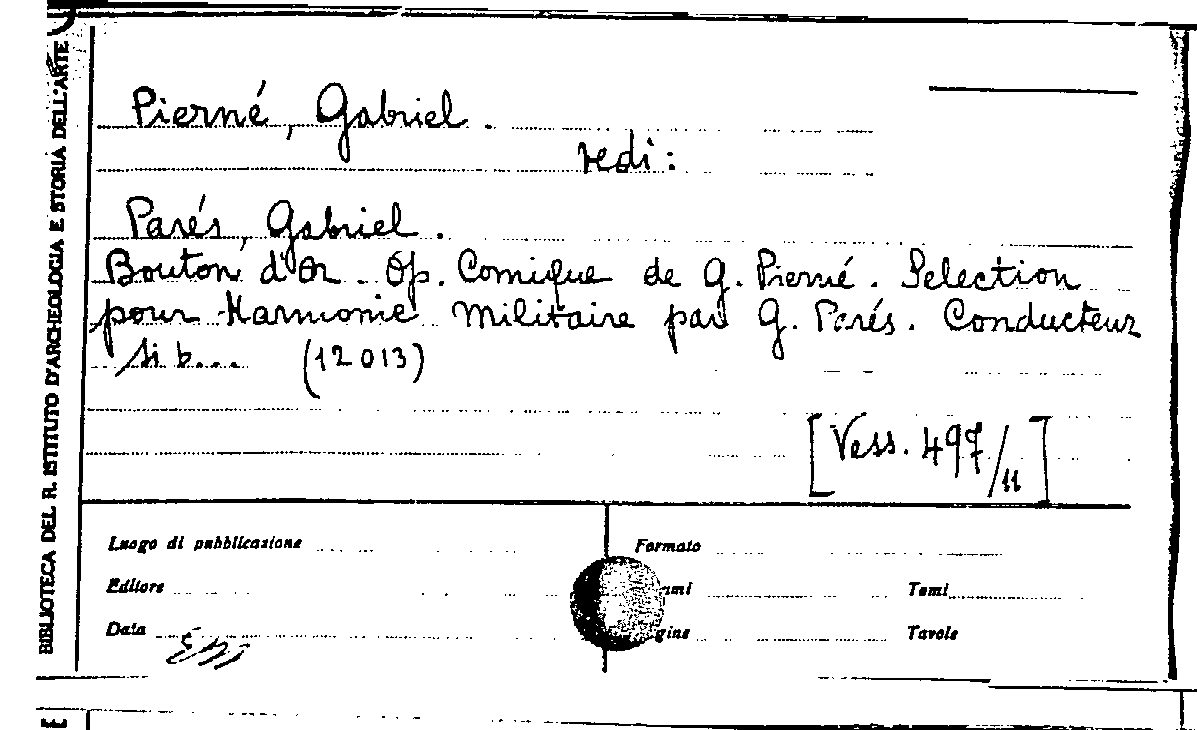 BIBLIOTECA DEL R. ISTITUTO D'ARCHEOLOGIA E STORIA DELL'ARTE
Pierné, Gabriel.
vedi:
Parés, Gabriel.
Bouton d'Or. Op. Comique de G. Pierné. Selection
pour Harmonie Militaire par G. Parés. Conducteur
si b... (12013)
[Vess. 497/11]
Luogo di pubblicazione
Formato
Editore
Tomi
Data
gine
Tavole
E